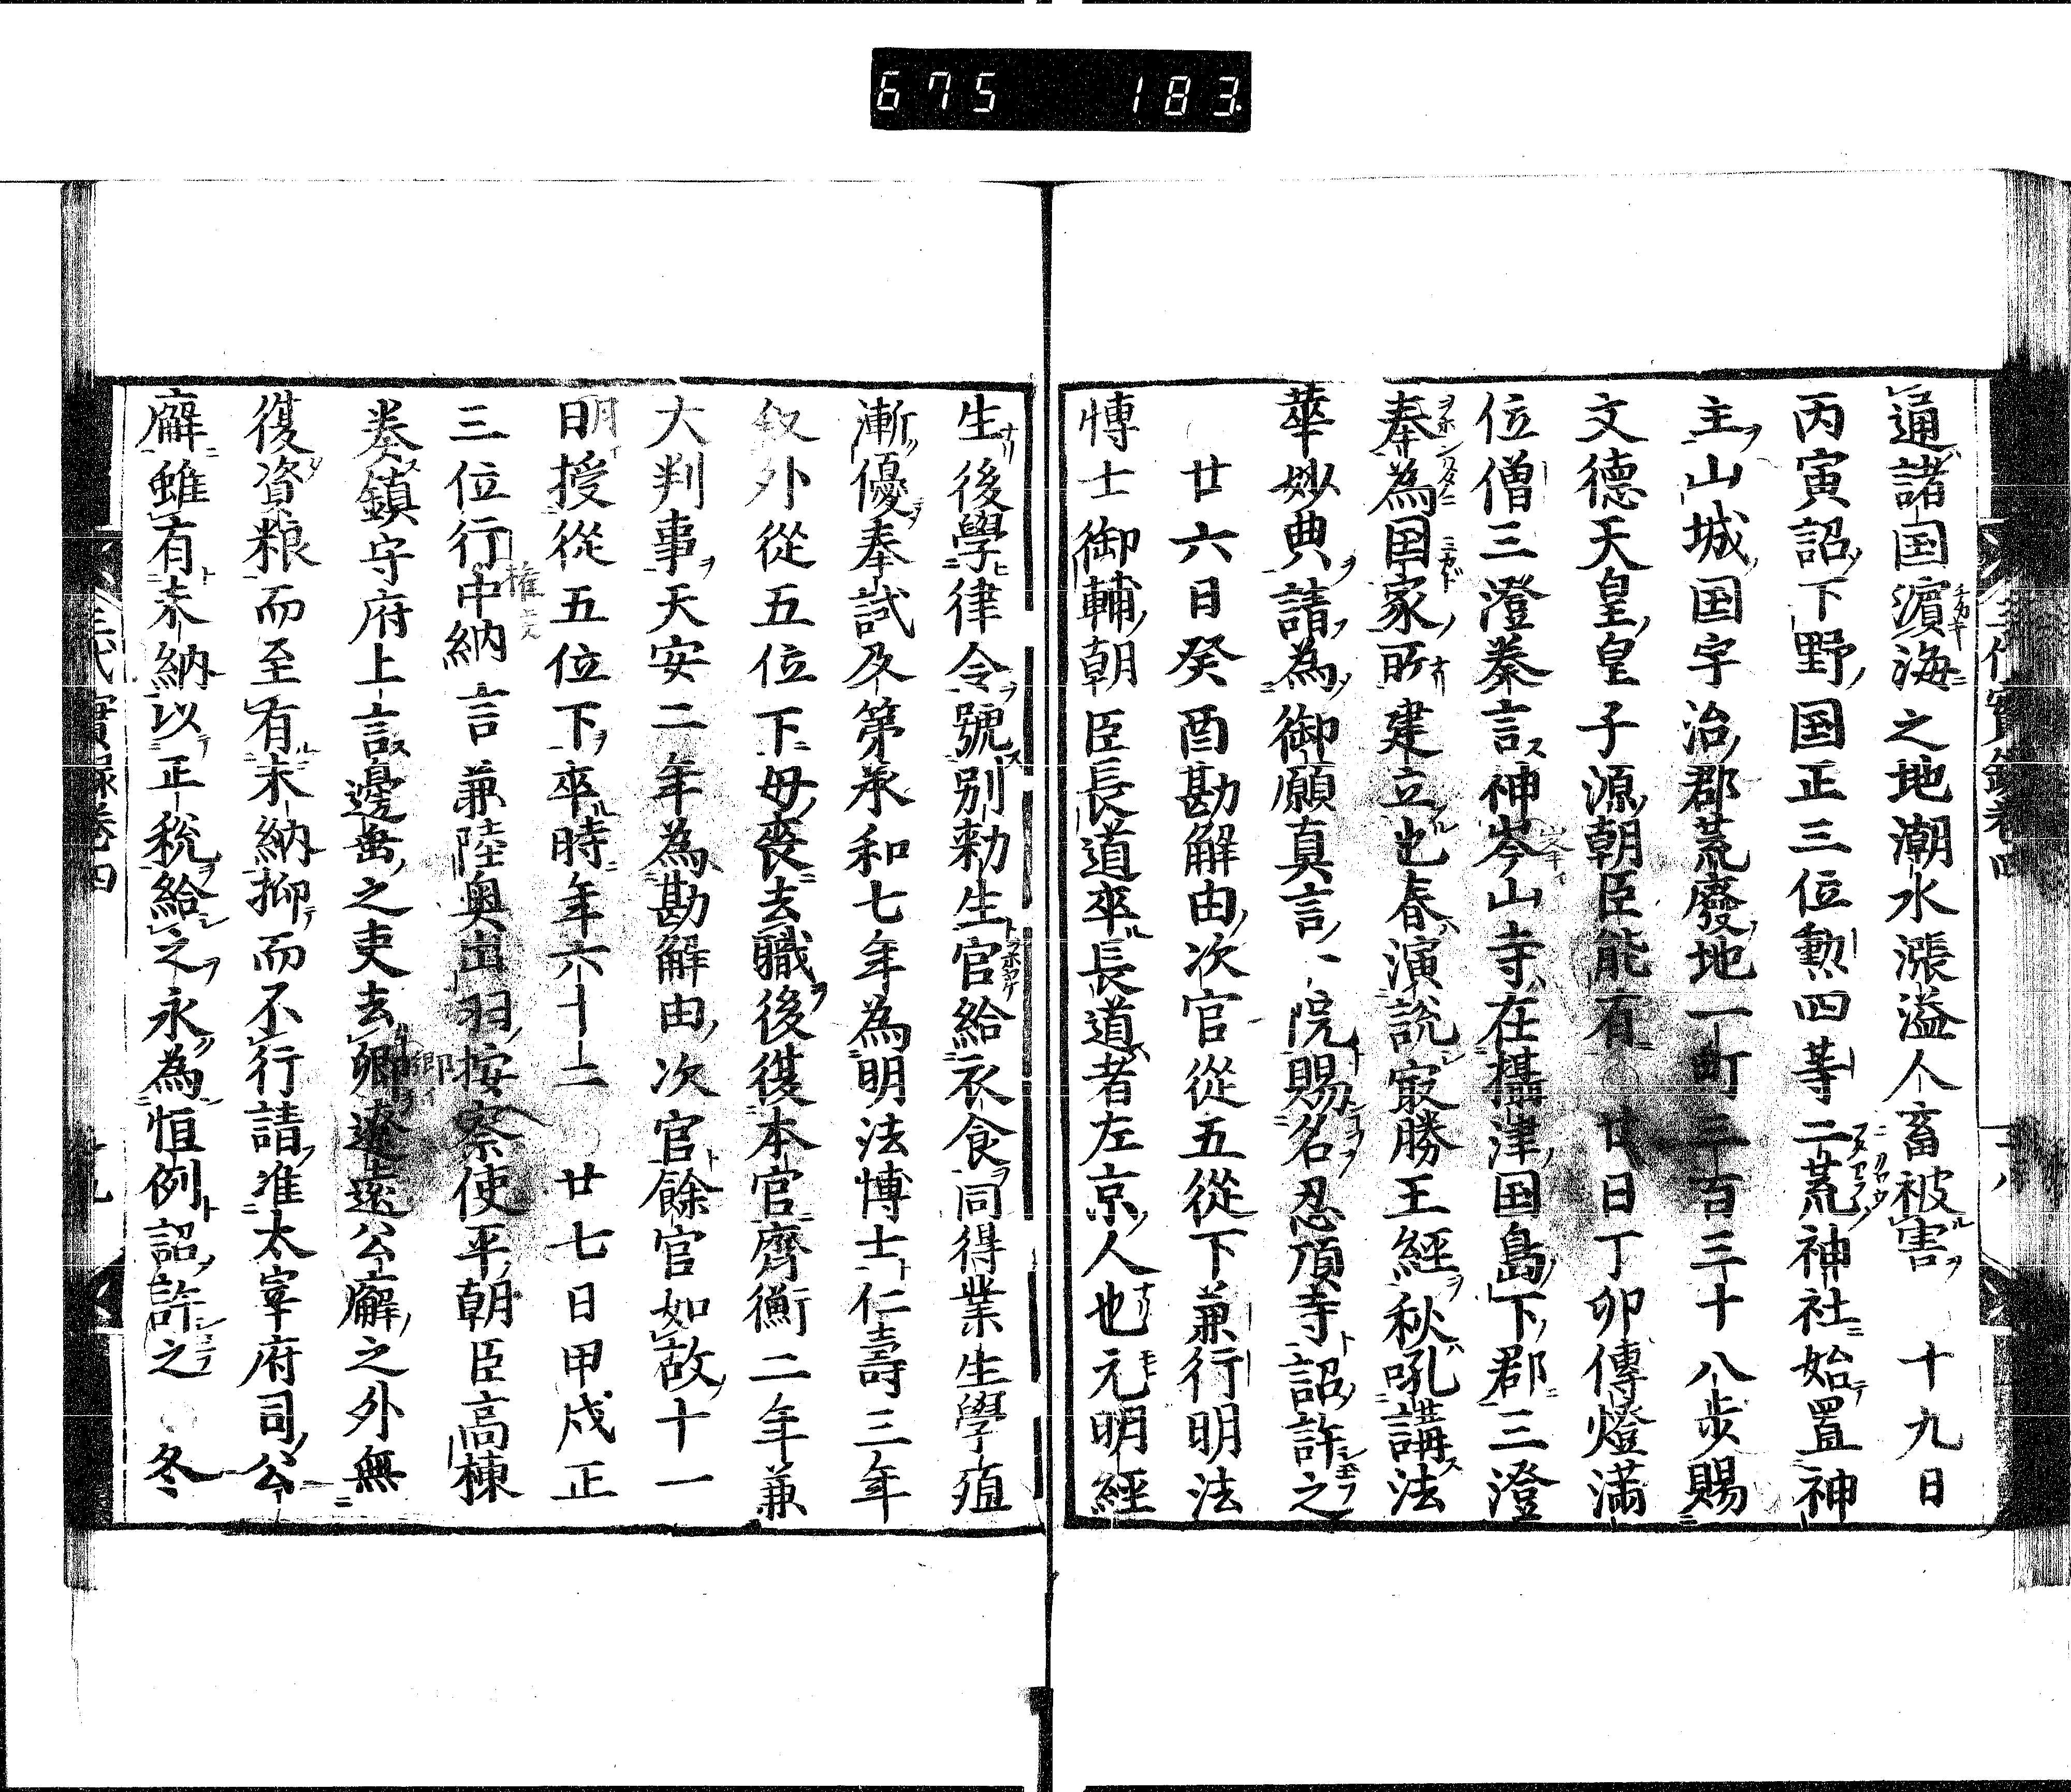 675 183
通諸国濵海之地潮水漲溢人畜被害 十九日
丙寅詔下野国正三位勳四等二荒神社始置神
主山城国宇治郡荒廢地一町三百三十八步賜
文德天皇皇子源朝臣能有 廿日丁卯傳燈滿
位僧三澄奏言神岑山寺在攝津国島下郡三澄
奉為国家所建立也春演說㝡勝王經秋吼講法
華妙典請為御願真言一院賜名忍頂寺詔許之
廿六日癸酉勘解由次官從五從下兼行明法
愽士御輔朝臣長道卒長道者左京人也元明經
生後學律令號别勅生官給衣食同得業生學殖
漸優奉試及第承和七年為明法愽士仁壽三年
叙外從五位下母喪去職後復本官齊衡二年兼
大判事天安二年為勘解由次官餘官如故十一
日授從五位下卒時年六十二 廿七日甲戌正
三位行中納言兼陸奥出羽按察使平朝臣高棟
奏鎮守府上言邊要之吏去郷遼遠公廨之外無
復資粮而至有未納抑而不行請准太宰府司公
廨雖有未納以正税給之永為恒例詔許之 冬
三代實録卷四